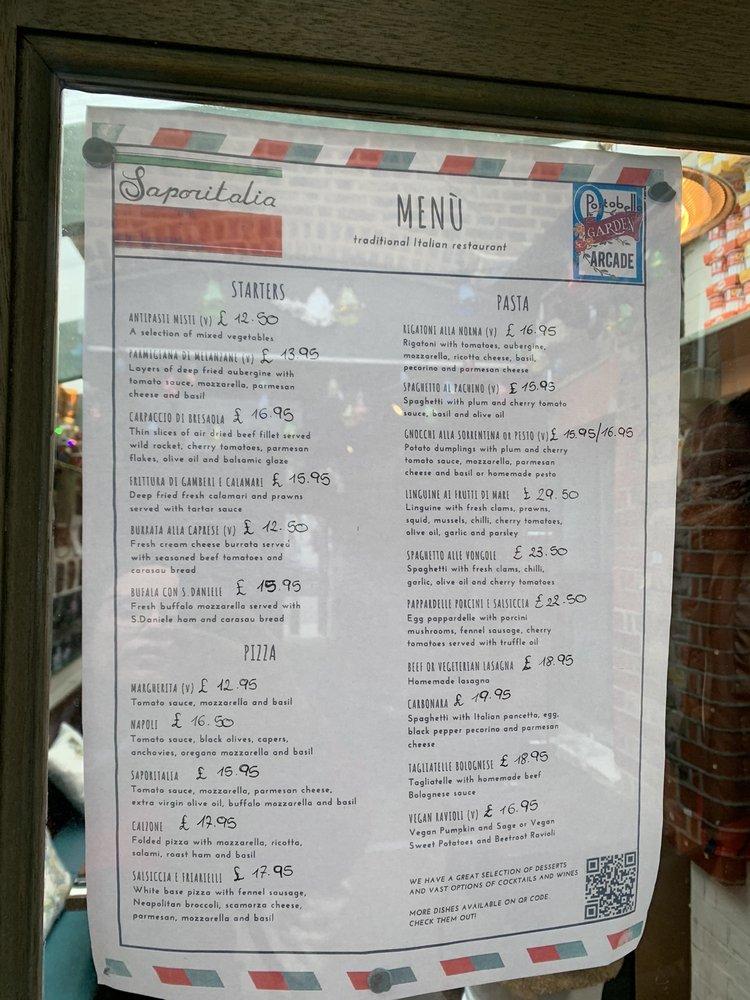 Saporitalia
MENÙ
traditional Italian restaurant
Portobello
GARDEN
ARCADE
STARTERS
ANTIPASTI MISTI (V) £ 12.50
A selection of mixed vegetables
PARMIGIANA DI MELANZANE (V) £ 13.95
Layers of deep fried aubergine with
tomato sauce, mozzarella, parmesan
cheese and basil
CARPACCIO DI BRESAOLA £ 16.95
Thin slices of air dried beef fillet served
wild rocket, cherry tomatoes, parmesan
flakes, olive oil and balsamic glaze
FRITTURA DI GAMBERI E CALAMARI £ 15.95
Deep fried fresh calamari and prawns
served with tartar sauce
BURRATA ALLA CAPRESE (V) £ 12.50
Fresh cream cheese burrata served
with seasoned beef tomatoes and
carasau bread
BUFALA CON S. DANIELE £ 15.95
Fresh buffalo mozzarella served with
S.Daniele ham and carasau bread
PIZZA
MARGHERITA (V) £ 12.95
Tomato sauce, mozzarella and basil
NAPOLI £ 16.50
Tomato sauce, black olives, capers,
anchovies, oregano mozzarella and basil
SAPORITALIA £ 15.95
Tomato sauce, mozzarella, parmesan cheese,
extra virgin olive oil, buffalo mozzarella and basil
CALZONE £ 17.95
Folded pizza with mazzarella, ricotta,
salami, roast ham and basil
SALSICCIA E FRIARIELLI £ 17.95
White base pizza with fennel sausage,
Neapolitan broccoli, scamorza cheese,
parmesan, mozzarella and basil
PASTA
RIGATONI ALLA NORMA (V) £ 16.95
Rigatoni with tomatoes, aubergine,
mozzarella, ricotta cheese, basil,
pecorino and parmesan cheese
SPAGHETTO AL PACHINO (V) £ 15.95
Spaghetti with plum and cherry tomato
sauce, basil and olive oil
GNOCCHI ALLA SORRENTINA OR PESTO (V) £ 15.95/16.95
Potato dumplings with plum and cherry
tomato sauce, mozzarella, parmesan
cheese and basil or homemade pesto
LINGUINE AI FRUTTI DI MARE £ 29.50
Linguine with fresh clams, prawns,
squid, mussels, chilli, cherry tomatoes,
olive oil, garlic and parsley
SPAGHETTO ALLE VONGOLE £ 23.50
Spaghetti with fresh clams, chilli,
garlic, olive oil and cherry tomatoes
PAPPARDELLE PORCINI E SALSICCIA £ 22.50
Egg pappardelle with porcini
mushrooms, fennel sausage, cherry
tomatoes served with truffle oil
BEEF OR VEGETERIAN LASAGNA £ 18.95
Homemade lasagna
CARBONARA £ 19.95
Spaghetti with Italian pancetta, egg,
black pepper pecorino and parmesan
cheese
TAGLIATELLE BOLOGNESE £ 18.95
Tagliatelle with homemade beef
Bolognese sauce
VEGAN RAVIOLI (V) £ 16.95
Vegan Pumpkin and Sage or Vegan
Sweet Potatoes and Beetroot Ravioli
WE HAVE A GREAT SELECTION OF DESSERTS
AND VAST OPTIONS OF COCKTAILS AND WINES
MORE DISHES AVAILABLE ON QR CODE.
CHECK THEM OUT!